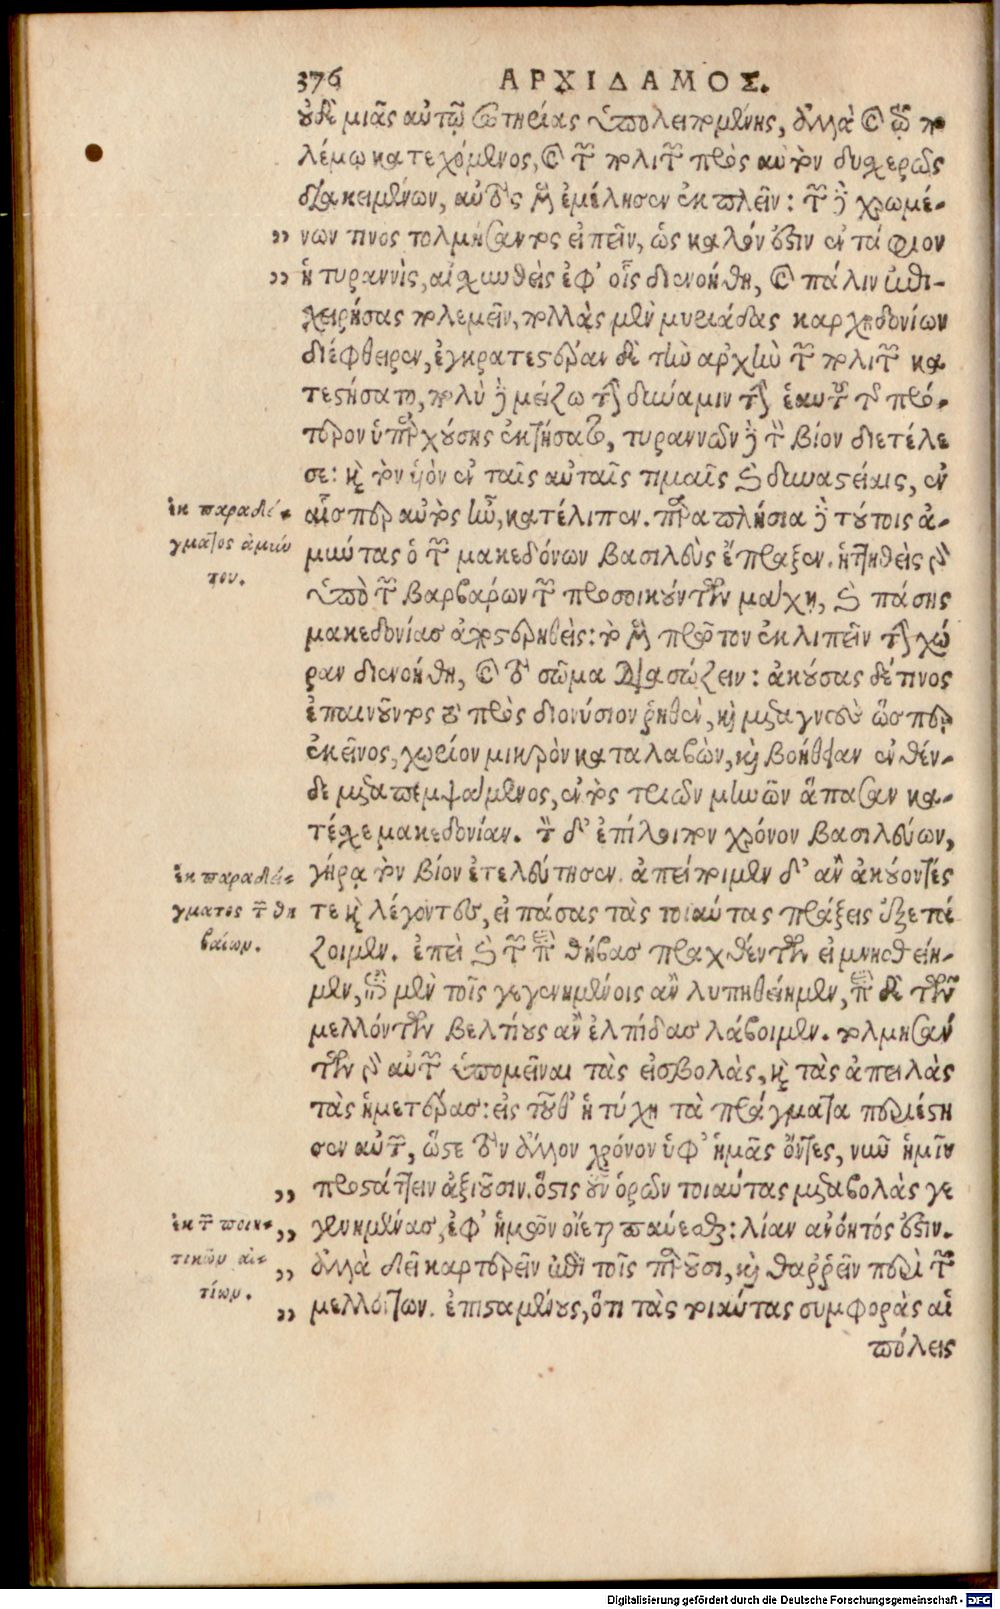 376
ΑΡΧΙΔΑΜΟΣ.
οὐδὲ μιᾶς αὐτῷ σωτηρίας ὑπολειπομένης, ἀλλὰ καὶ τῷ πο
λέμῳ κατεχόμενος, καὶ τῶν πολιτῶν πρὸς αὐτὸν δυσχερῶς
διακειμένων, αὐτὸς μὲν ἐμέλησεν ἐκπλεῖν: τῶν δὲ χρωμέ-
„ νων τινος τολμήσαντος εἰπεῖν, ὡς καλόν ἐστιν ἐντάφιον
„ ἡ τυραννὶς, αἰσχυνθεὶς ἐφ' οἷς διενοήθη, καὶ πάλιν ἐπι-
χειρήσας πολεμεῖν, πολλὰς μὲν μυριάδας καρχηδονίων
διέφθειρεν, ἐγκρατεστέραν δὲ τὴν ἀρχὴν τῶν πολιτῶν κα
τεστήσατο, πολὺ δὲ μείζω τὴν δύναμιν τῆς ἑαυτοῦ τῆς πρό-
τερον ὑπαρχούσης ἐκτήσατο, τυραννῶν δὲ τὸν βίον διετέλε
σε: καὶ τὸν υἱὸν ἐν ταῖς αὐταῖς τιμαῖς καὶ δυναστείαις, ἐν
ἐκ παραδεί-
γματος ἀμύν
του.
αἷσπερ αὐτὸς ἦν, κατέλιπεν. παραπλήσια δὲ τούτοις ἀ-
μύντας ὁ τῶν μακεδόνων βασιλεὺς ἔπραξεν. ἡττηθεὶς γὰρ
ὑπὸ τῶν βαρβάρων τῶν προσοικούντων μάχῃ, καὶ πάσης
μακεδονίας ἀποστερηθεὶς: τὸ μὲν πρῶτον ἐκλιπεῖν τὴν χώ
ραν διενοήθη, καὶ τὸ σῶμα διασώζειν: ἀκούσας δέ τινος
ἐπαινοῦντος τὸ πρὸς διονύσιον ῥηθὲν, καὶ μεταγνοὺς ὥσπερ
ἐκεῖνος, χωρίον μικρὸν καταλαβὼν, καὶ βοήθειαν ἐνθέν-
δε μεταπεμψάμενος, ἐντὸς τριῶν μηνῶν ἅπασαν κα-
τέσχε μακεδονίαν. τὸν δ' ἐπίλοιπον χρόνον βασιλεύων,
ἐκ παραδεί-
γματος τῶν θη
βαίων.
γήρᾳ τὸν βίον ἐτελεύτησεν. ἀπείποιμεν δ' ἂν ἀκούοντές
τε καὶ λέγοντες, εἰ πάσας τὰς τοιαύτας πράξεις ἐξετά
ζοιμεν. ἐπεὶ καὶ τῶν περὶ θήβας πραχθέντων εἰ μνησθείη-
μεν, ἐπὶ μὲν τοῖς γεγενημένοις ἂν λυπηθείημεν, περὶ δὲ τῶν
μελλόντων βελτίους ἂν ἐλπίδας λάβοιμεν. τολμησάν
των γὰρ αὐτῶν ὑπομεῖναι τὰς εἰσβολὰς, καὶ τὰς ἀπειλὰς
τὰς ἡμετέρας: εἰς τοῦθ' ἡ τύχη τὰ πράγματα περιέστη
σεν αὐτῶν, ὥστε τὸν ἄλλον χρόνον ὑφ' ἡμᾶς ὄντες, νῦν ἡμῖν
„ προστάττειν ἀξιοῦσιν. ὅστις οὖν ὁρῶν τοιαύτας μεταβολὰς γε
ἐκ τῶν ποιη-
τικῶν αἰ-
τίων.
„ γενημένας, ἐφ' ἡμῶν οἴεται παύεσθαι: λίαν ἀνόητός ἐστιν.
„ ἀλλὰ δεῖ καρτερεῖν ἐπὶ τοῖς παροῦσι, καὶ θαῤῥεῖν περὶ τῶν
„ μελλόντων. ἐπισταμένους, ὅτι τὰς τοιαύτας συμφορὰς αἱ
πόλεις
Digitalisierung gefördert durch die Deutsche Forschungsgemeinschaft - DFG